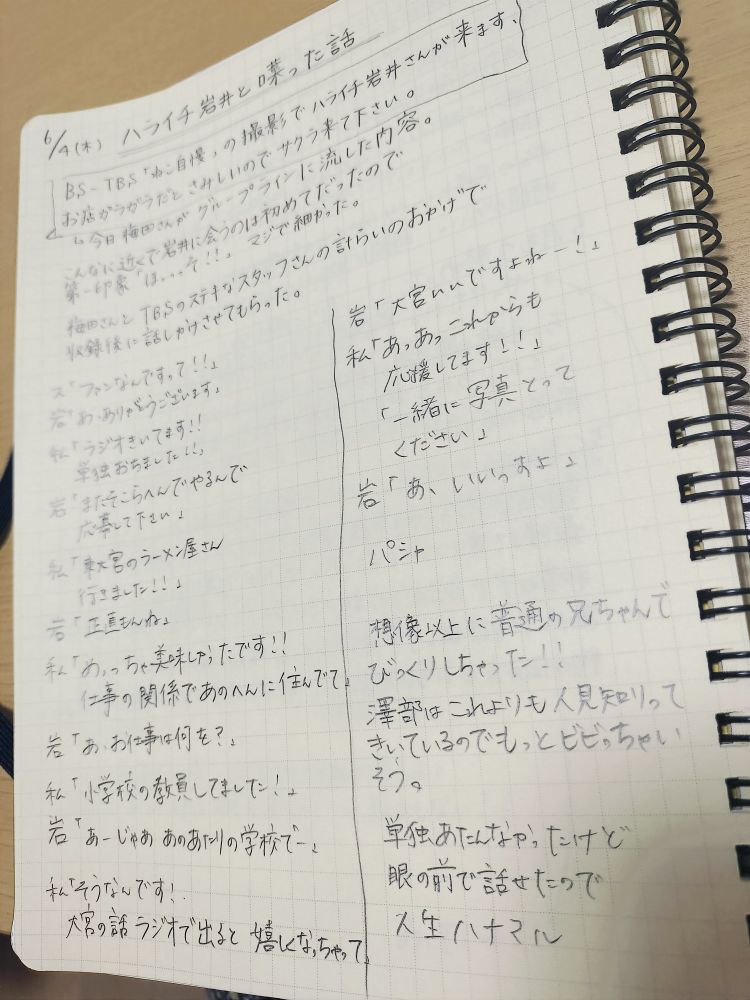 6/4(木) ハライチ岩井と喋った話
BS-TBS「ねこ自慢」の撮影でハライチ岩井さんが来ます、
お店がラガラだとさみしいのでサクラ来て下さい。
↳今日梅田さんがグループラインに流した内容。
こんなに近くで岩井に会うのは初めてだったので
第一印象「ほ...そ!!」 マジで細かった。
梅田さんとTBSのステキなスタッフさんの計らいのおかげで
収録後に話しかけさせてもらった。
ス「ファンなんですって!!」
岩「あ、ありがとうございます」
私「ラジオきいてます!!
単独おちました!!」
岩「またそこらへんでやるんで
応募して下さい」
私「東大宮のラーメン屋さん
行きました!!」
岩「正直もんね」
私「めっっちゃ美味しかったです!!
仕事の関係であのへんに住んでて」
岩「あ、お仕事は何を?」
私「小学校の教員してました!」
岩「あーじゃあ あのあたりの学校でー」
私「そうなんです!
大宮の話ラジオで出ると 嬉しくなっちゃって」
岩「大宮いいですよねー!」
私「あっあっこれからも
応援してます!!」
「一緒に写真とって
ください」
岩「あ、いいっすよ」
パシャ
想像以上に普通の兄ちゃんで
びっくりしちゃった!!
澤部はこれよりも人見知りって
きいているのでもっとビビっちゃい
そう。
単独あたんなかったけど
眼の前で話せたので
人生ハナマル